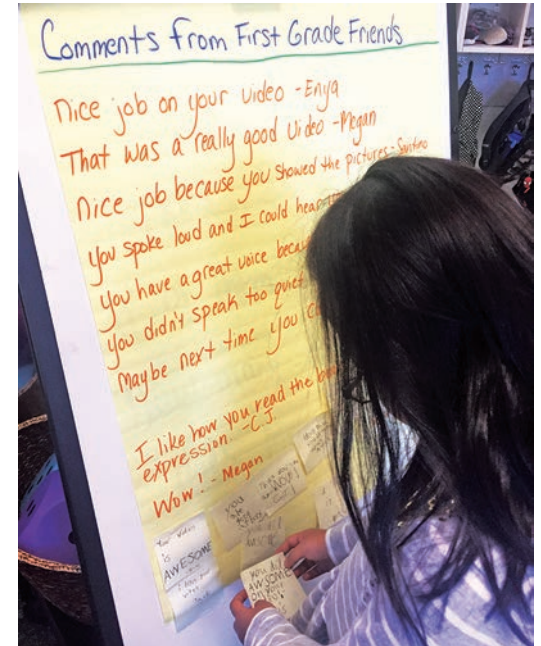 Comments from First Grade Friends
Nice job on your video - Enya
That was a really good video - Megan
Nice job because you showed the pictures - Santino
You spoke loud and I could hear
You have a great voice
you didn't speak too quiet
Maybe next time you
I like how you read the
expression. - C.J.
Wow! - Megan
Your video
is
AWESOME
you did
AWSOME
on your